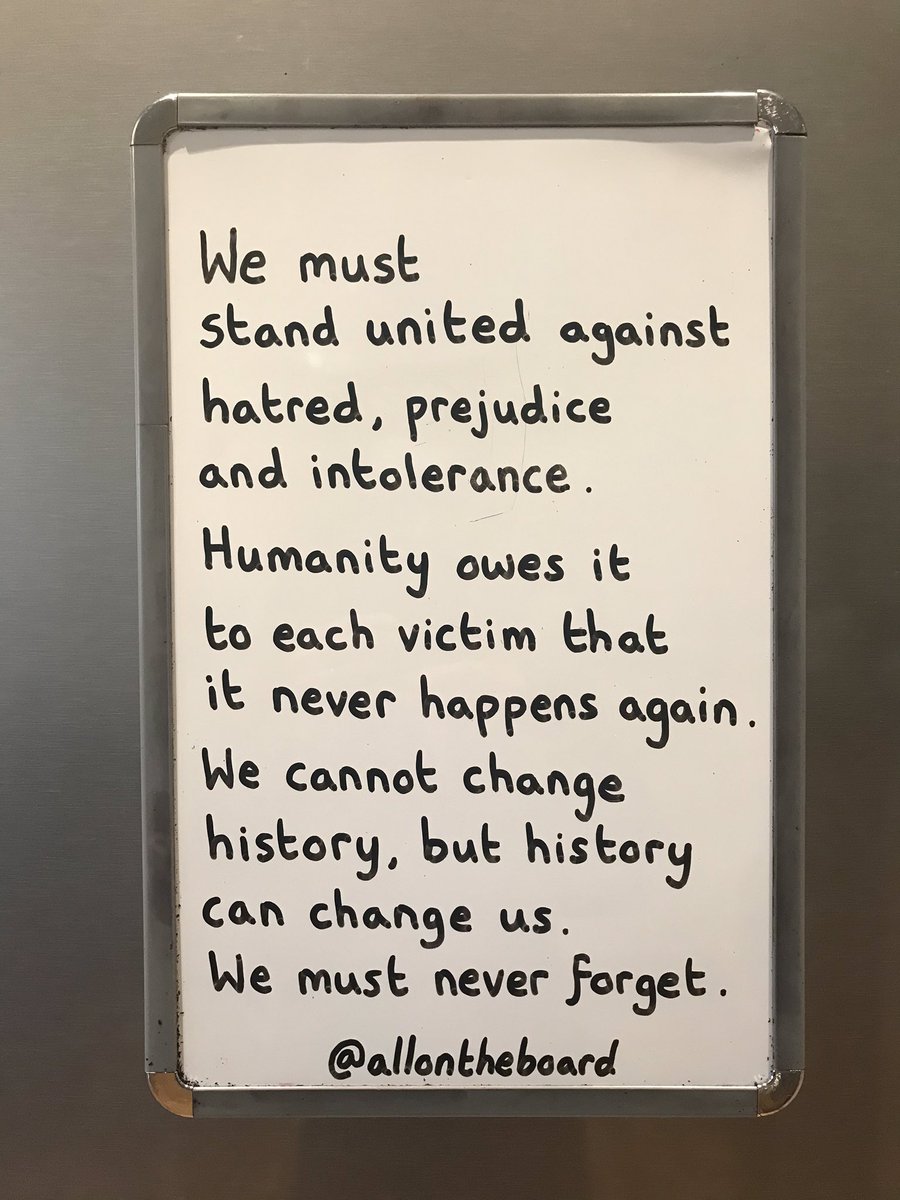 We must
stand united against
hatred, prejudice
and intolerance.
Humanity owes it
to each victim that
it never happens again.
We cannot change
history, but history
can change us.
We must never forget.
@allontheboard